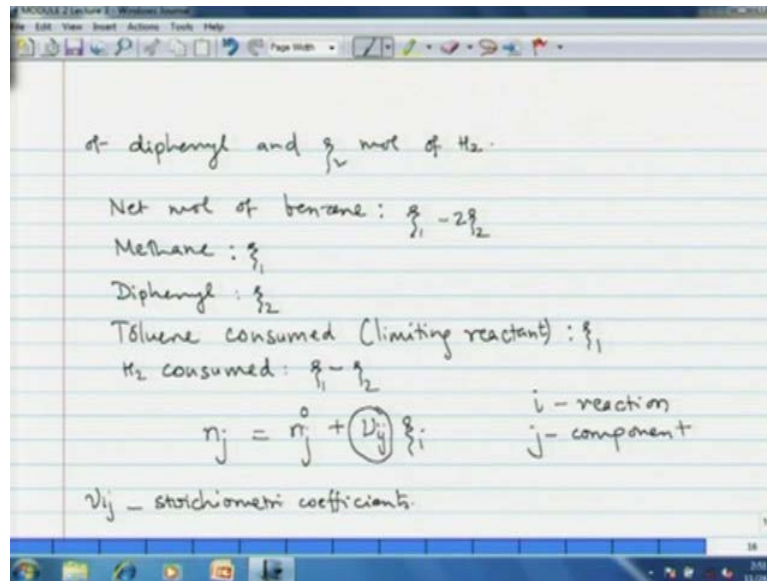 MODULE-2 Lecture 1 - Windows Journal
File Edit View Insert Actions Tools Help
Page Width
of diphenyl and ξ₂ mol of H₂.
Net mol of benzene : ξ₁ - 2ξ₂
Methane : ξ₁
Diphenyl : ξ₂
Toluene consumed (limiting reactant) : ξ₁
H₂ consumed : ξ₁ - ξ₂
nⱼ = nⱼ⁰ + νᵢⱼ ξᵢ
i - reaction
j - component
νij - stoichiometri coefficients.
16